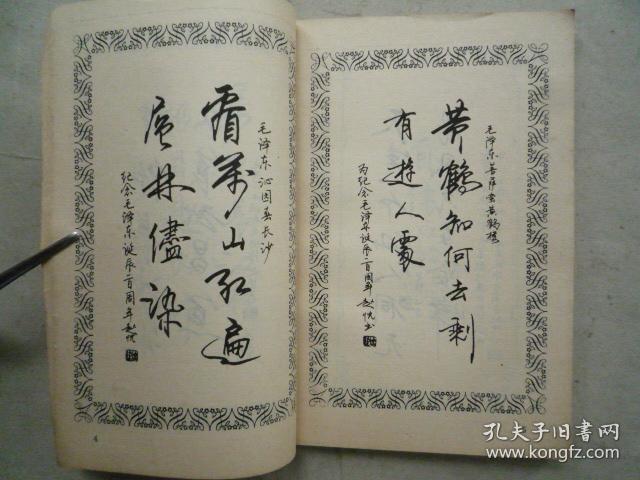 毛泽东沁园春长沙
看萬山红遍
层林儘染
纪念毛泽东诞辰一百周年
4
毛泽东菩萨蛮黄鹤楼
黄鹤知何去剩
有遊人處
为纪念毛泽东诞辰一百周年
孔夫子旧书网
www.kongfz.com